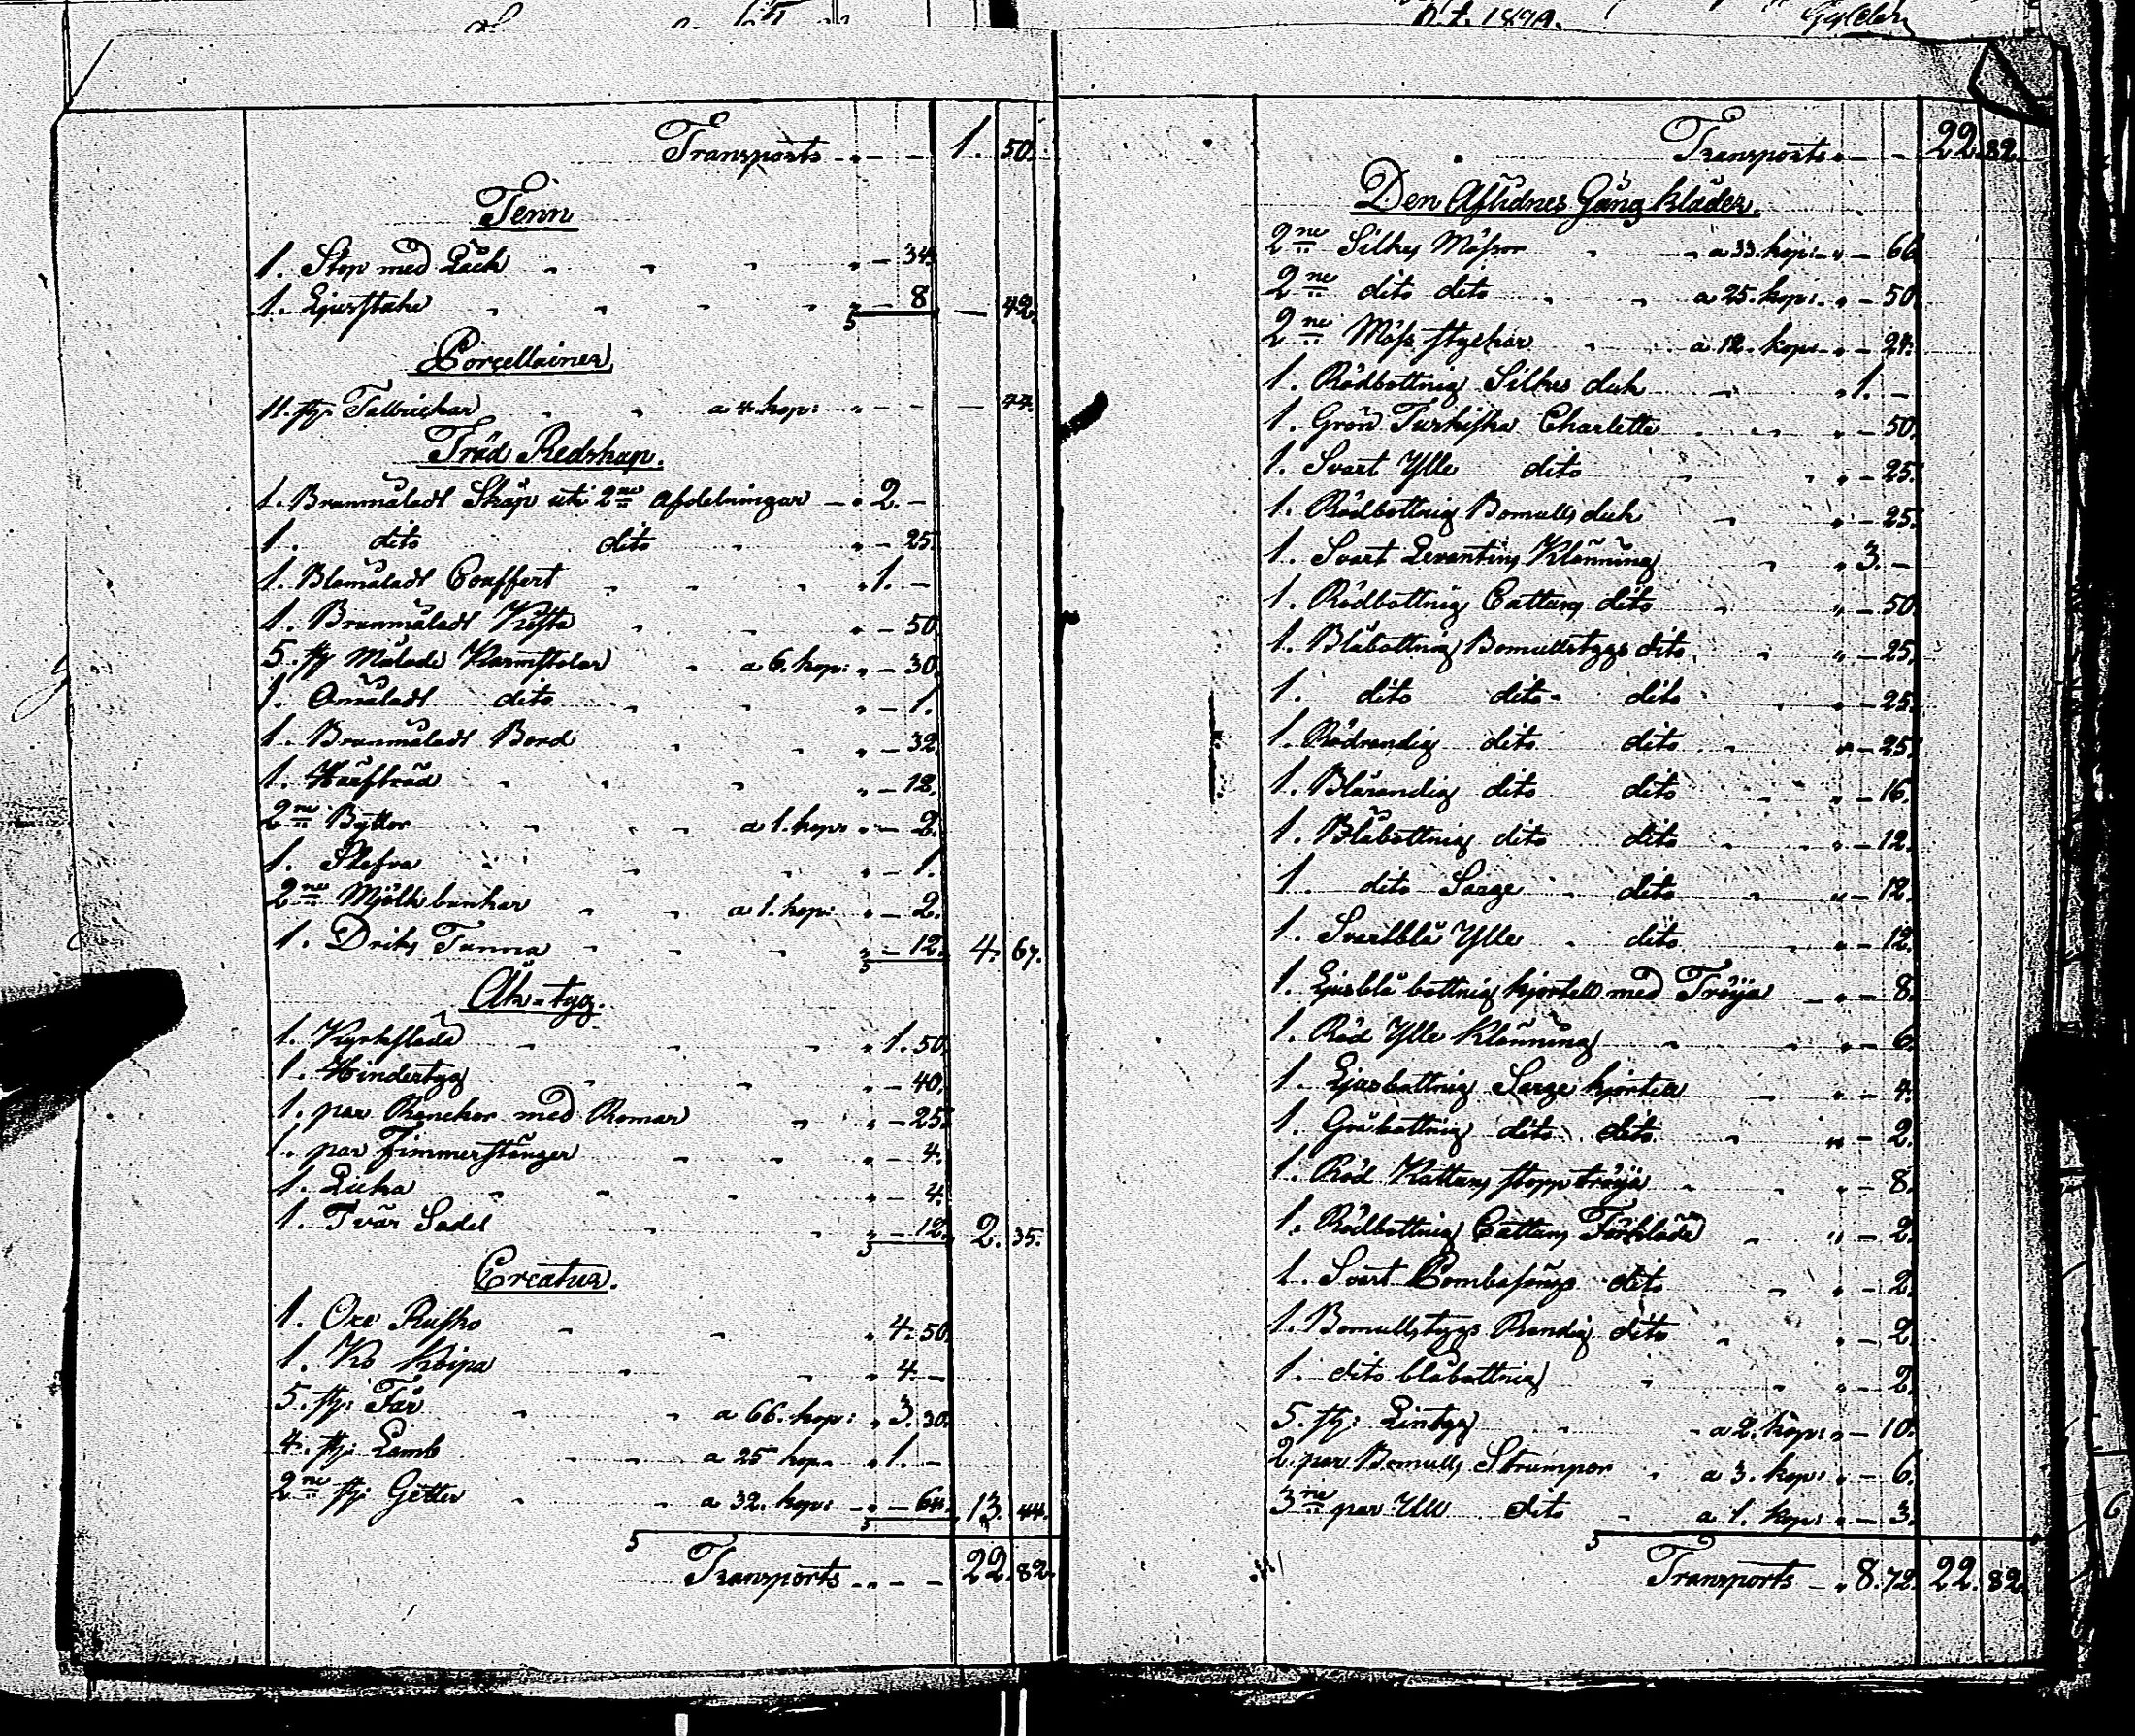 Transports - - - 1. 50.
Tenn
1. Stop med Låck - 34.
1. Ljusstake - 8 — 42.
Porcellainer
11. st: Tallrickar a 4. kop: — 44.
Träd Redskap.
1. Brunmåladt Skåp uti 2ne Afdelningar 2. -
1. dito dito - 25.
1. Blåmåladt Couffert 1. -
1. Brunmåladt Kista - 50
5. st: Målade Karmstolar a 6. kop: - 30.
1. Omåladt dito - 1.
1. Brunmåladt Bord - 32.
1. - 12.
2ne Byttor a 1. kop: - 2.
1. Slefva - 1.
2ne Mjölk bunkar a 1. kop: - 2.
1. Driks Tunna - 12. 4. 67.
Åk-tyg.
1. Kyrksläde 1. 50.
1. Hindertyg - 40.
1. par Ranckor med Romar - 25.
1. par Timmerstänger - 4.
1. Licka - 4.
1. Tvär Sadel - 12. 2. 35.
Creatur.
1. Oxe Rusko 4. 50.
1. Ko Köipa 4. -
5. st: Får a 66. kop: 3. 30.
4. st: Lamb a 25 kop. 1. -
2ne st: Getter a 32. kop: - 64. 13. 44.
Transports - - - 22. 82.
Transports - - 22. 82.
Den Aflidnes Gång kläder.
2ne Silkes Mössor a 33. kop: - 66
2ne dito dito a 25. kop: - 50
2ne Möss styckar a 12. kop: - 24.
1. Rödbottnig Silkes duk 1. -
1. Grön Turkiska Charlette - 50.
1. Svart Ylle dito - 25.
1. Rödbottnig Bomulls duk - 25.
1. Svart Levantins Klänning 3. -
1. Rödbottnig Cattuns dito - 50
1. Blåbottnig Bomullstygs dito - 25.
1. dito dito dito - 25.
1. Rödrandig dito dito - 25.
1. Blårandig dito dito - 16.
1. Blåbottnig dito dito - 12.
1. dito Sarge dito - 12.
1. Svartblå Ylle dito - 12.
1. Ljusblå bottnig kjortell med Tröija - 8.
1. Röd Ylle Klänning - 6.
1. Ljusbottnig Sarge kjortell - 4.
1. Gråbottnig dito dito - 2.
1. Röd Kattuns stopp tröija - 8.
1. Rödbottnig Cattuns Förkläde - 2.
1. Svart Bombasångs dito - 2.
1. Bomullstygs Randig dito - 2.
1. dito blåbottnig - 2.
5. st: Lintyg a 2. kop: - 10.
2 par Bomulls Strumpor a 3. kop: - 6.
3ne par Ylle dito a 1. kop: - 3.
Transports - 8. 72. 22. 82.